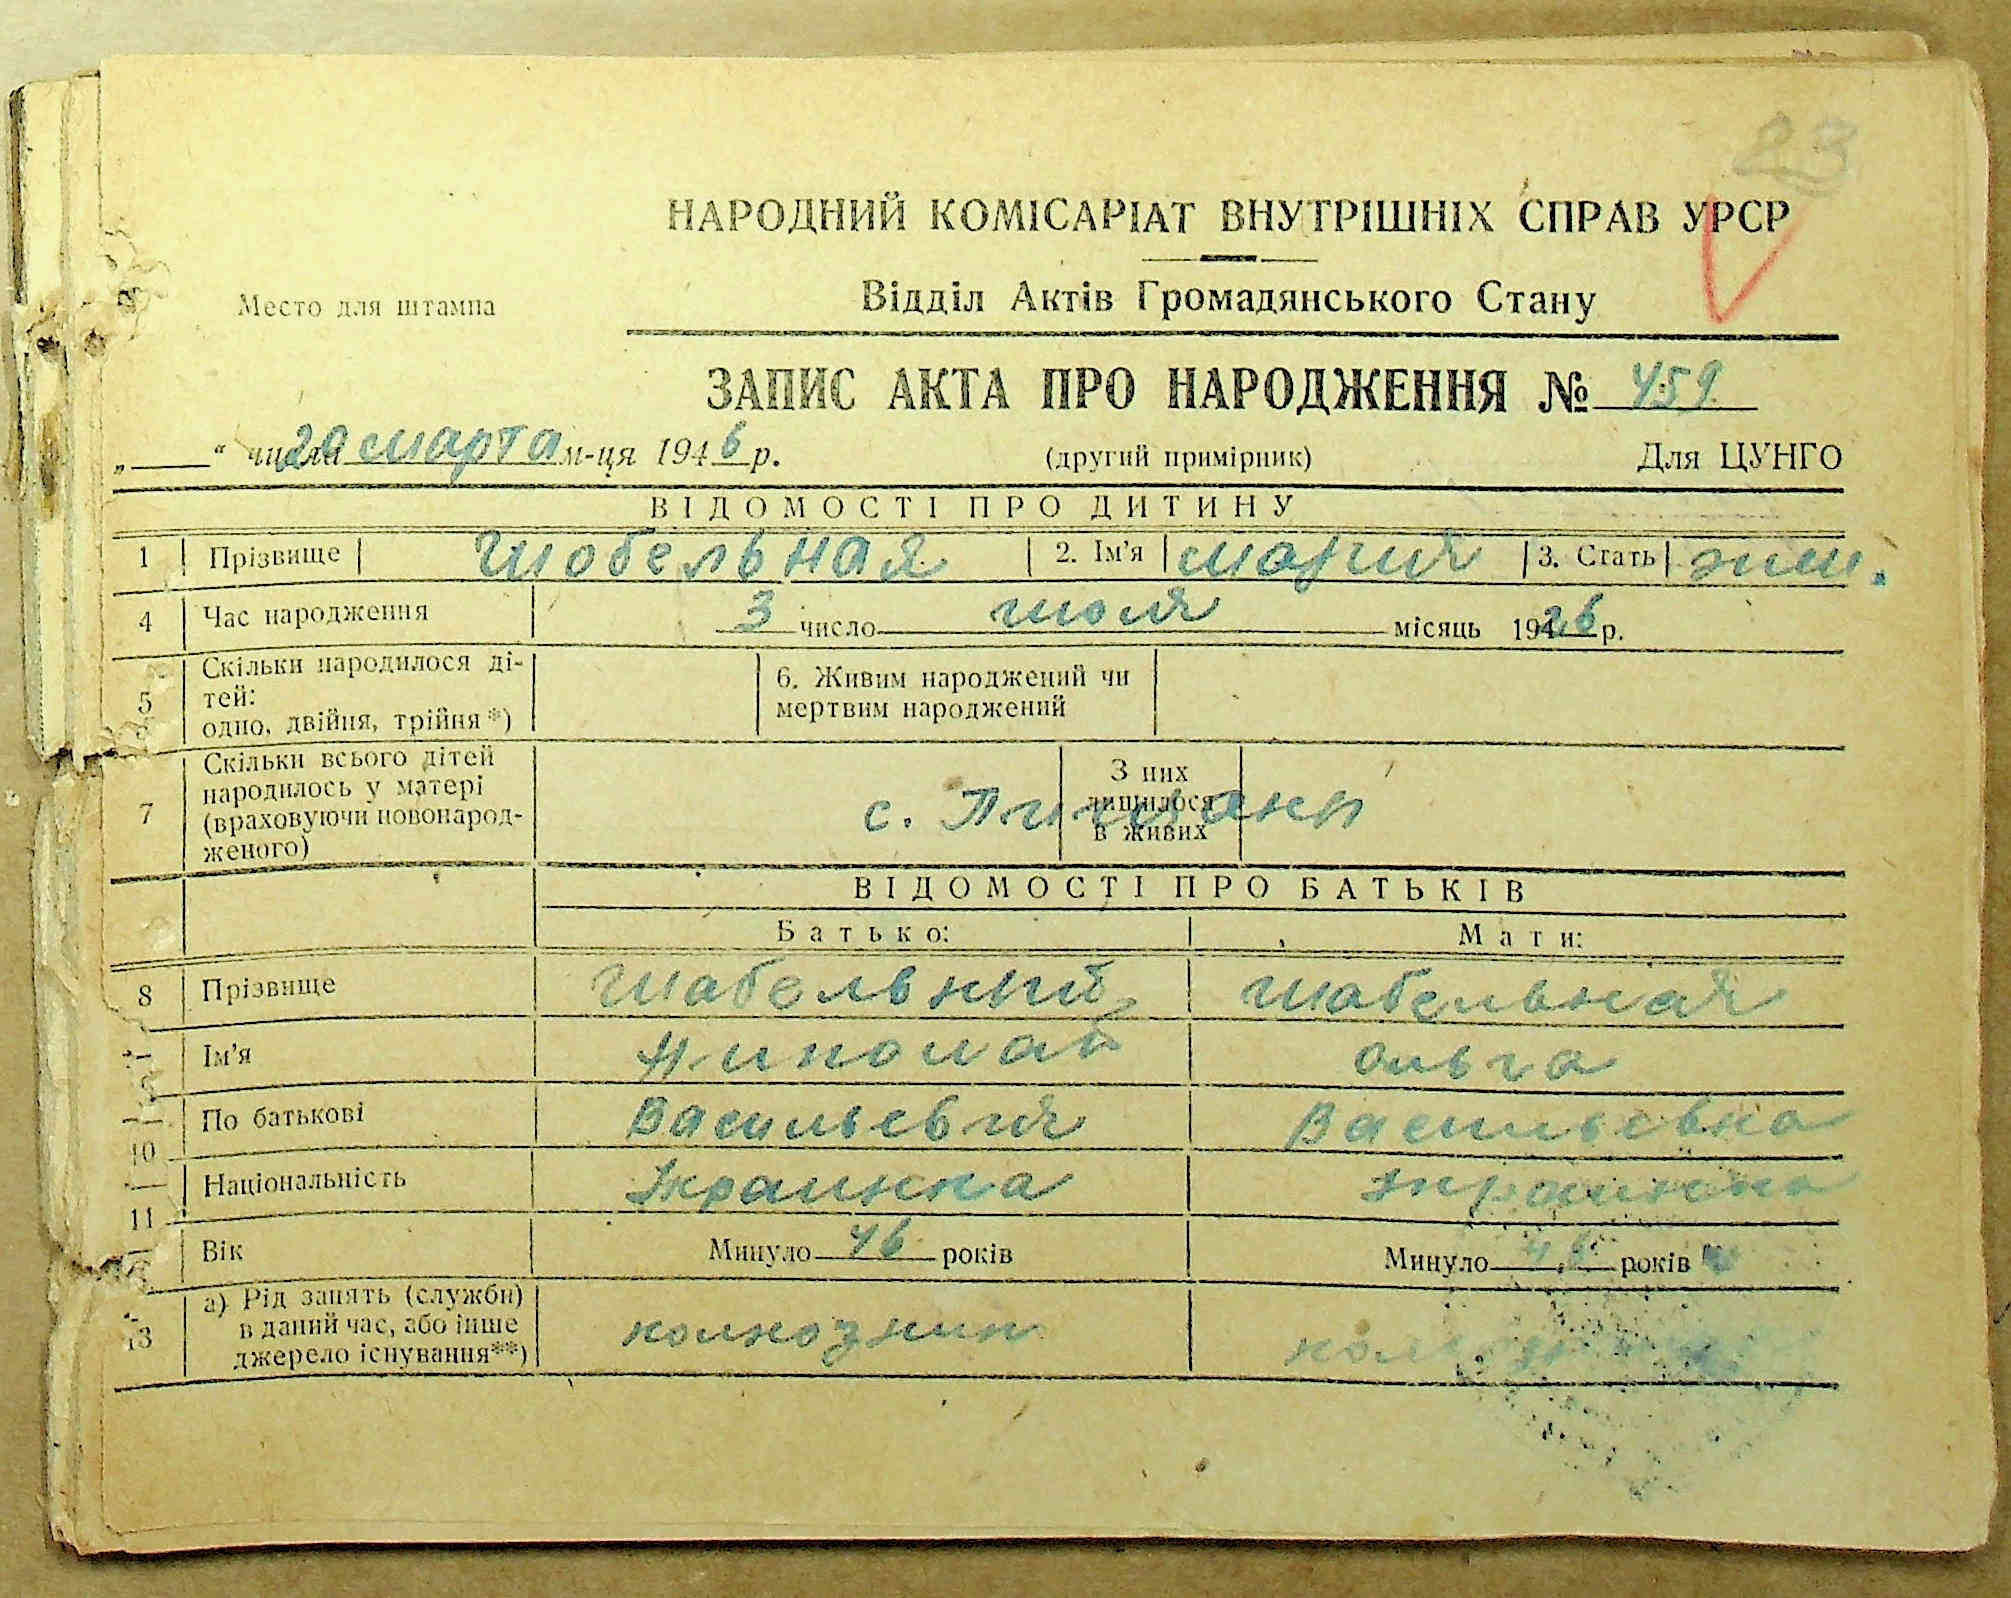 23
НАРОДНИЙ КОМІСАРІАТ ВНУТРІШНІХ СПРАВ УРСР
Место для штампа
Відділ Актів Громадянського Стану
ЗАПИС АКТА ПРО НАРОДЖЕННЯ № 459
„ “ числа 20 марта м-ця 1946 р. (другий примірник) Для ЦУНГО
ВІДОМОСТІ ПРО ДИТИНУ
1 Прізвище Шабельная 2. Ім'я Мария 3. Стать жен.
4 Час народження 3 число июля місяць 1926 р.
5 Скільки народилося ді-
тей:
одно, двійня, трійня*)
6. Живим народжений чи
мертвим народжений
7 Скільки всього дітей
народилось у матері
(враховуючи новонарод-
женого)
З них
лишилося
в живих
с. Пищаны
ВІДОМОСТІ ПРО БАТЬКІВ
Батько: Мати:
8 Прізвище Шабельный Шабельная
Ім'я Николай Ольга
10 По батькові Васильевич Васильевна
11 Національність Украинка Украинка
Вік Минуло 46 років Минуло років
13 а) Рід занять (служби)
в даний час, або інше
джерело існування**)
колхозник